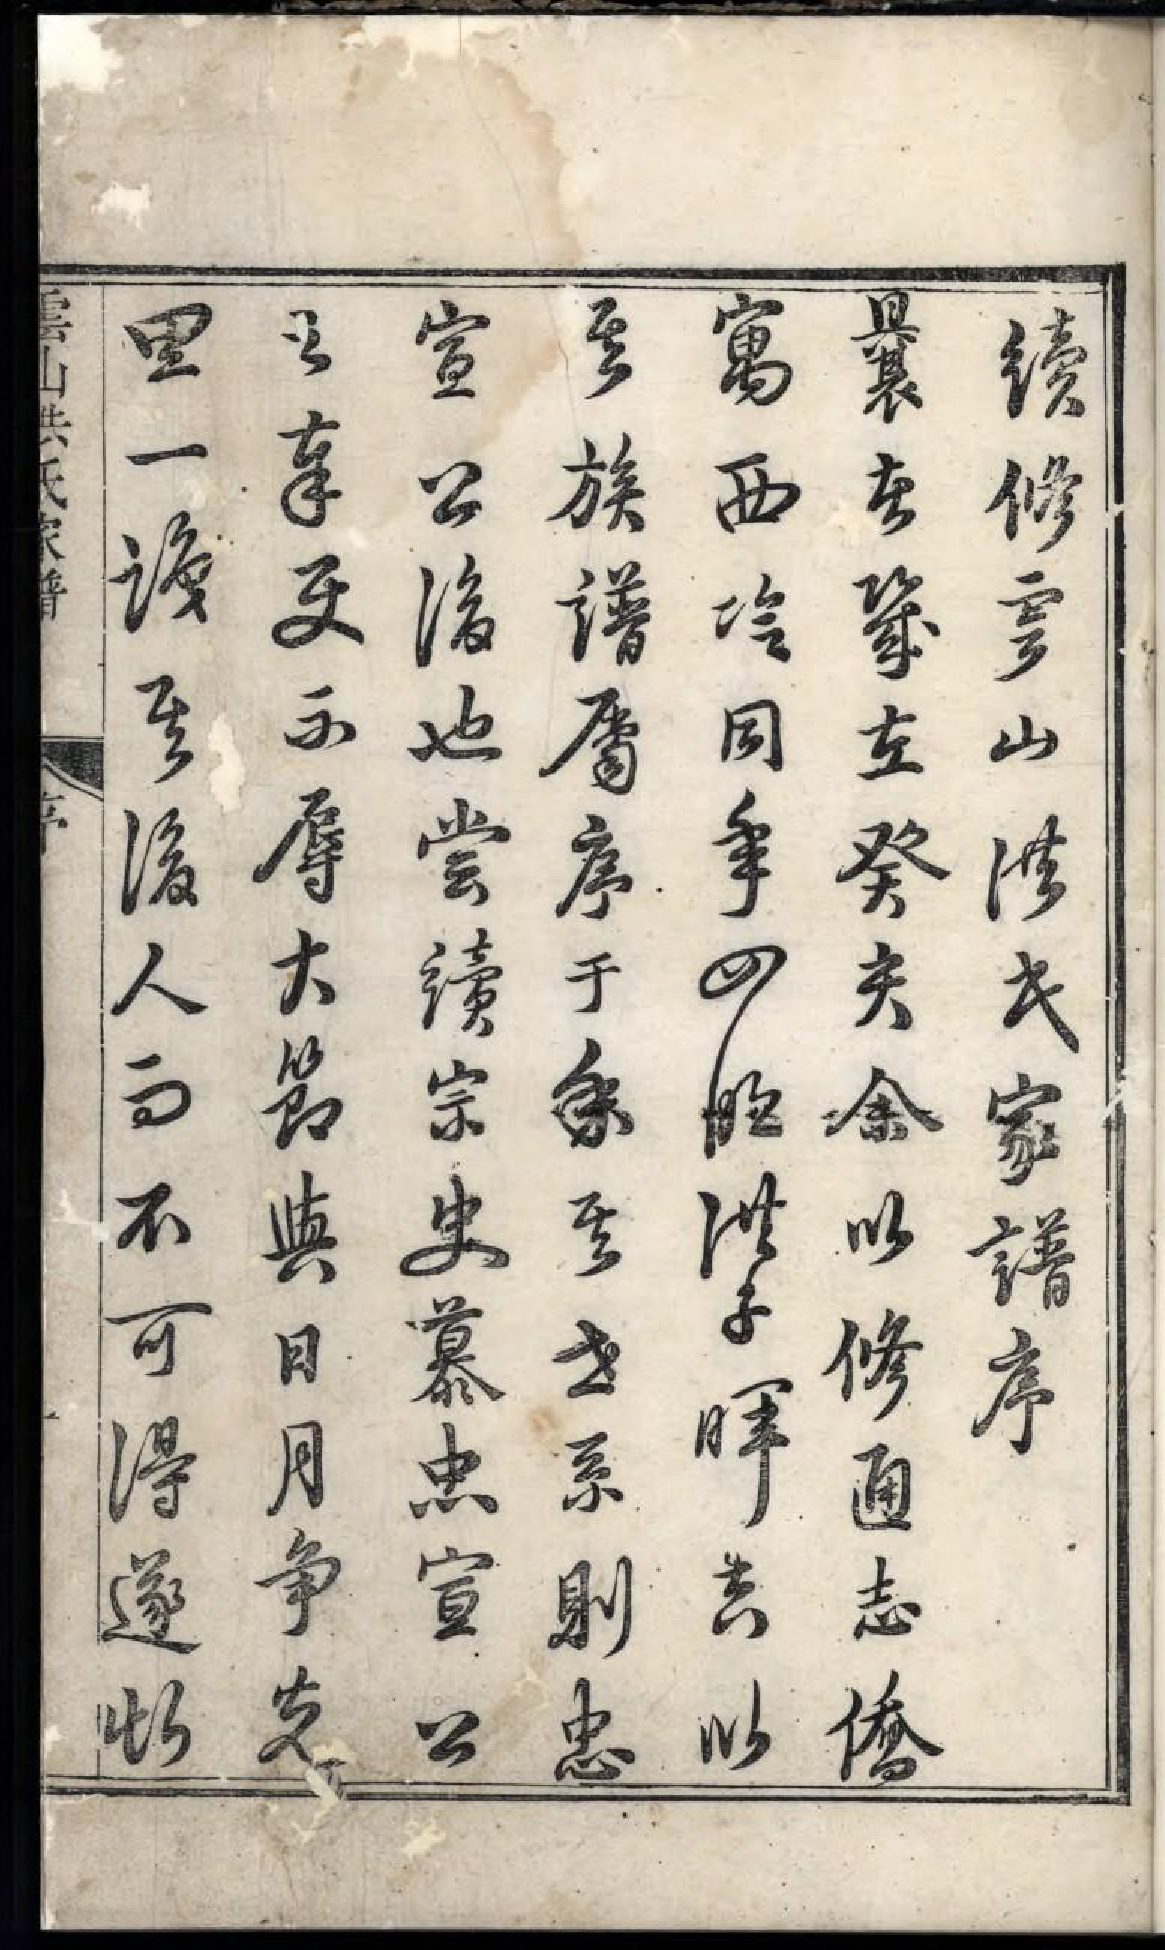 續修雲山洪氏家譜序
曩者歲在癸亥余以修通志僑
寓西泠同年洪子暉吉以
其族譜屬序于余其世系則忠
宣公後也嘗讀宗史慕忠宣公
之奉使不辱大節與日月爭光
思一識其後人而不可得遂
雲山洪氏家譜
序
一